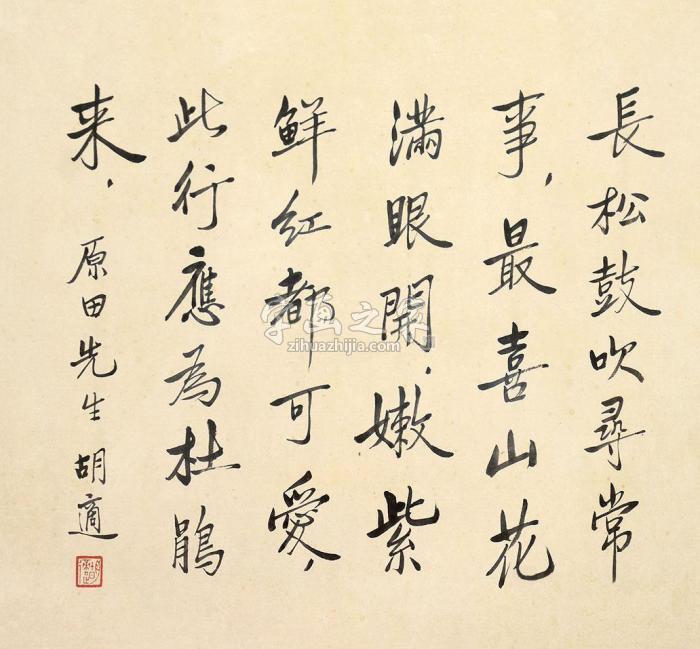 長松鼓吹尋常
事，最喜山花
满眼開，嫩紫
鲜红都可愛，
此行應為杜鹃
来，
原田先生 胡適
字画之家
zihuazhijia.com